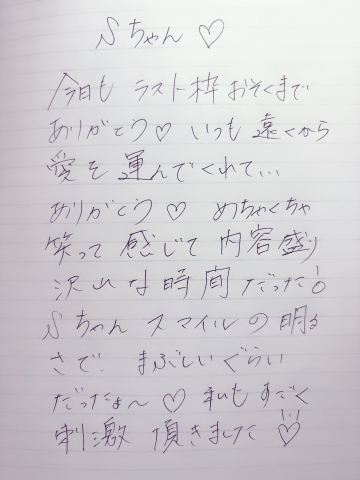 Sちゃん♡
今日も ラスト枠 おそくまで
ありがとう♡ いつも 遠くから
愛を 運んでくれて...
ありがとう♡ めちゃくちゃ
笑って 感じて 内容盛り
沢山な時間 だった!
Sちゃん スマイルの 明る
さで まぶしいぐらい
だったよ〜♡ 私も すごく
刺激 頂きました♡